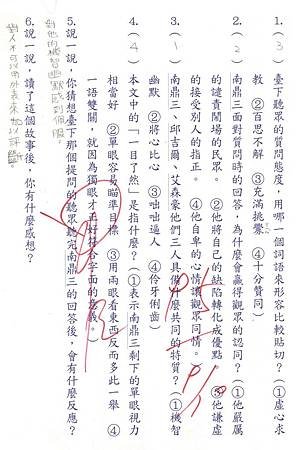 1. ( 3 ) 臺下聽眾的質問態度，用哪一個詞語來形容比較貼切？(①虛心求
教 ②百思不解 ③充滿挑釁 ④十分贊同)
2. ( 2 ) 南鼎三面對質問時的回答，為什麼會贏得觀眾的認同？(①他嚴厲
的譴責鬧場的民眾。 ②他將自己的缺陷轉化成優點 ③他謙虛
的接受別人的指正。 ④他自卑的心情讓觀眾同情。)
3. ( 1 ) 南鼎三、邱吉爾、艾森豪他們三人具備什麼共同的特質？(①機智
幽默 ②將心比心 ③咄咄逼人 ④伶牙俐齒)
4. ( 4 ) 本文中的「一目了然」是指什麼？(①表示南鼎三剩下的單眼視力
相當好 ②單眼容易瞄準目標 ③用兩眼看東西反而多此一舉 ④
一語雙關，就因為獨眼才正好符合字面的意義。)
5. 說一說，你猜想臺下那個提問的聽眾聽完南鼎三的回答後，會有什麼反應？
對他的機智幽默感到佩服。
6. 說一說，讀了這個故事後，你有什麼感想？
對人不可以用外表來加以評斷